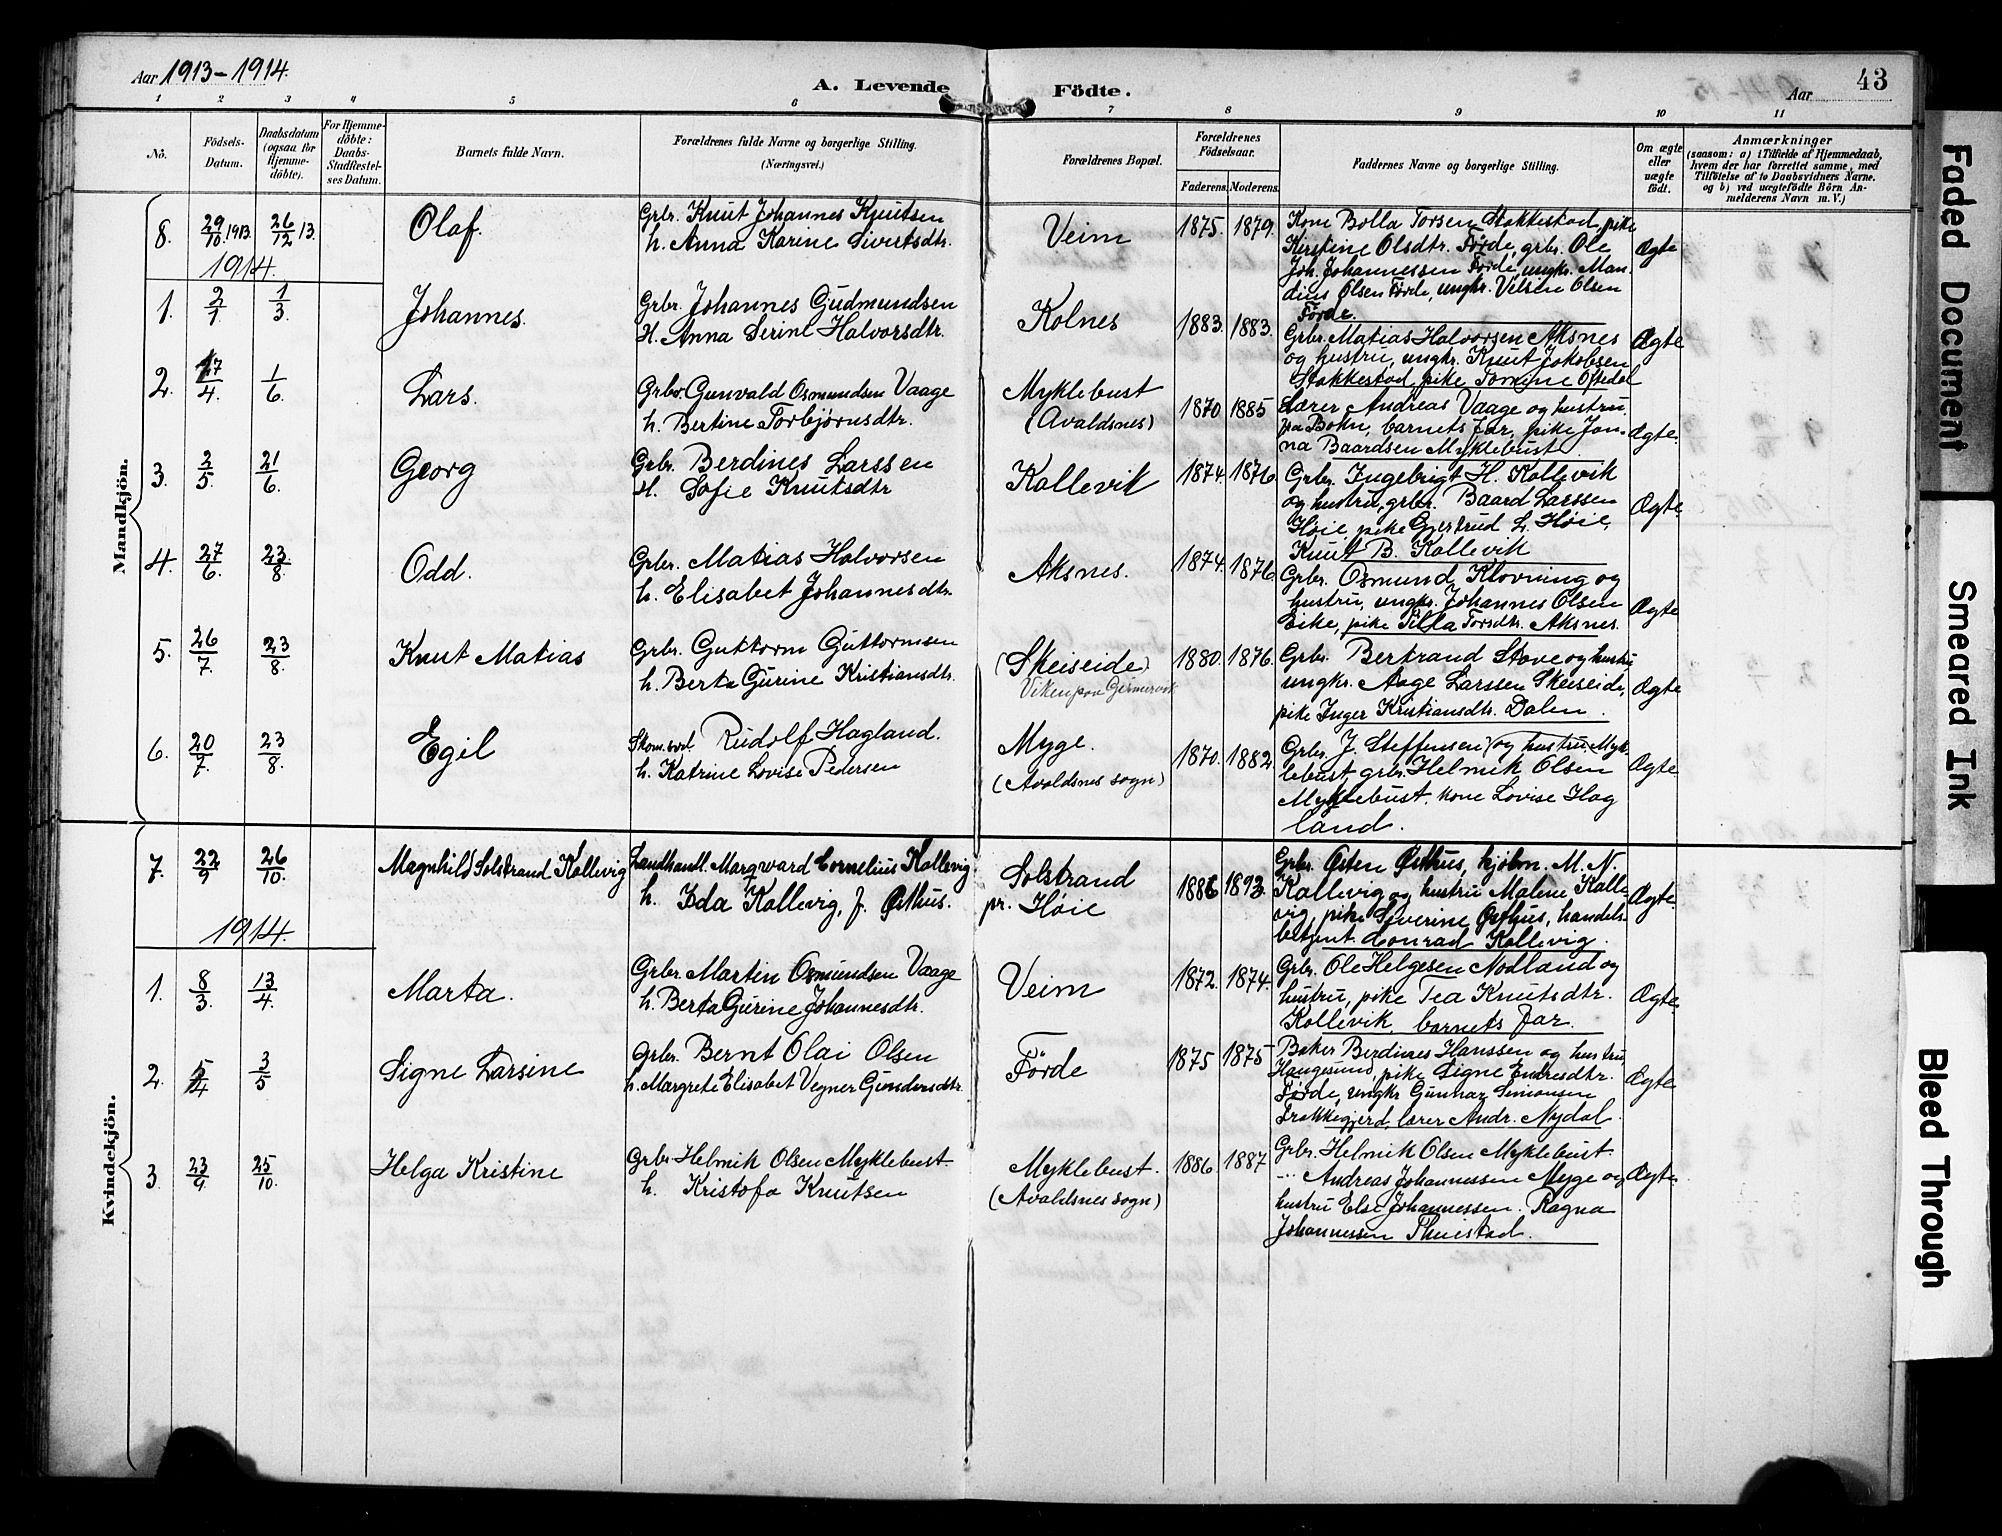 Aar 1913-1914.
A. Levende Födte.
Aar 43
1 2 3 4 5 6 7 8 9 10 11
No. Födsels-Datum. Daabsdatum (ogsaa for Hjemme-döbte). For Hjemme-döbte: Daabs-Stadfæstel-ses Datum. Barnets fulde Navn. Forældrenes fulde Navne og borgerlige Stilling. (Næringsvei.) Forældrenes Bopæl. Forældrenes Födselsaar. Faderens. Moderens. Faddernes Navne og borgerlige Stilling. Om ægte eller uægte födt.
Anmærkninger
(saasom: a) i Tilfælde af Hjemmedaab,
hvem der har forrettet samme, med
Tilföielse af to Daabsvidners Navne.
og b) ved uægtefödte Börn An-
melderens Navn m. V.)
Mandkjön.
8. 29/10 1913. 26/12 13. Olaf. Grbr. Knut Johannes Knutsen
h. Anna Karine Sivertsdtr.
Veim 1875. 1879. Kone Bolla Torsen Stakkestad, pike
Kirstine Olsdtr. Førde, grbr. Ole
Joh. Johannessen Førde, ungkr. Man-
dius Olsen Førde, ungkr. Vilsen Olsen
Førde.
Ægte
1914.
1. 2/1 1/3. Johannes. Grbr. Johannes Gudmundsen
H. Anna Serine Halvorsdtr.
Kolnes 1883. 1883. Grbr. Matias Halvorsen Aksnes
og hustru, ungkr. Knut Jakobsen
Stakkestad, pike Tomine Oftedal
Ægte
2. 17/4. 1/6. Lars. Grbr. Gunvald Osmundsen Vaage
h. Bertine Torbjørnsdtr.
Myklebust
(Avaldsnes)
1870 1885 Lærer Andreas Vaage og hustru
paa Bokn, barnets far, pike Jon-
na Baardsen Myklebust
Ægte.
3. 2/5. 21/6. Georg Grbr. Berdines Larssen
H. Sofie Knutsdtr
Kallevik 1874. 1876. Grbr. Ingebrigt H. Kallevik
og hustru, grbr. Baard Larssen
Høie, pike Gjertrud L. Høie,
Knut B. Kallevik
Ægte.
4. 27/6. 23/8. Odd. Grbr. Matias Halvorsen
h. Elisabet Johannesdtr.
Aksnes. 1874. 1876. Grbr. Osmund Klovning og
hustru, ungkr. Johannes Olsen
Eike, pike Tilla Torsdtr. Aksnes.
Ægte
5. 26/7 23/8. Knut Matias Grbr. Guttorm Guttormsen
h. Berta Gurine Kristiansdtr.
(Skeiseide)
Viken paa
1880. 1876. Grbr. Bertrand Stave og hustru
ungkr. Aage Larssen Skeiseide,
pike Inger Kristiansdtr. Dalen.
Ægte
6. 20/7. 23/8. Egil Rudolf Hagland.
h. Katrine Lovise Pedersen
Myge.
(Avaldsnes sogn)
1870. 1882 Grbr. J. Steffensen og hustru Myk-
lebust, grbr. Helmik Olsen
Myklebust, kone Lovise Hag
land.
Ægte
Kvindekjön.
7. 22/9 26/10. Magnhild Solstrand Kallevig Landhandl. Marqward Cornelius Kallevig
h. Ida Kallevig, f. Østhus.
Solstrand
pr. Høie
1886 1893. Grbr. Østen Østhus, kjøbm. M. N.
Kallevig og hustru Malene Kalle
vig, pike Severine Østhus, handels-
betjent Conrad Kallevig.
Ægte.
1914.
1. 8/3. 13/4. Marta. Grbr. Martin Osmundsen Vaage
h. Berta Gurine Johannesdtr.
Veim 1872. 1874. Grbr. Ole Helgesen Nodland og
hustru, pike Tea Knutsdtr.
Kallevik, barnets far.
Ægte
2. 5/4 3/5. Signe Larsine Grbr. Bernt Olai Olsen
h. Margrete Elisabet Vegner Gundersdtr.
Førde 1875 1875 Baker Berdines Hanssen og hustru,
Haugesund, pike Signe Endresdtr.
Førde, ungkr Gunnar Simonsen
lærer Andr. Nydal.
Ægte
3. 23/9. 25/10. Helga Kristine Grbr Helmik Olsen Myklebust
h. Kristofa Knutsen
Myklebust.
(Avaldsnes sogn)
1886 1887 Grbr. Helmik Olsen Myklebust
-"- Andreas Johannessen Myge og
hustru Else Johannessen. Ragna
Johannessen
Ægte
Faded Document
Smeared Ink
Bleed Through